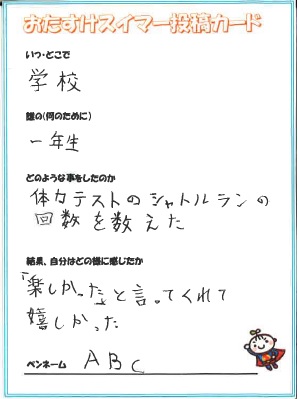 おたすけスイマー投稿カード
いつ・どこで
学校
誰の(何のために)
一年生
どのような事をしたのか
体力テストのシャトルランの
回数を数えた
結果、自分はどの様に感じたか
「楽しかった」と言ってくれて
嬉しかった
ペンネーム ABC